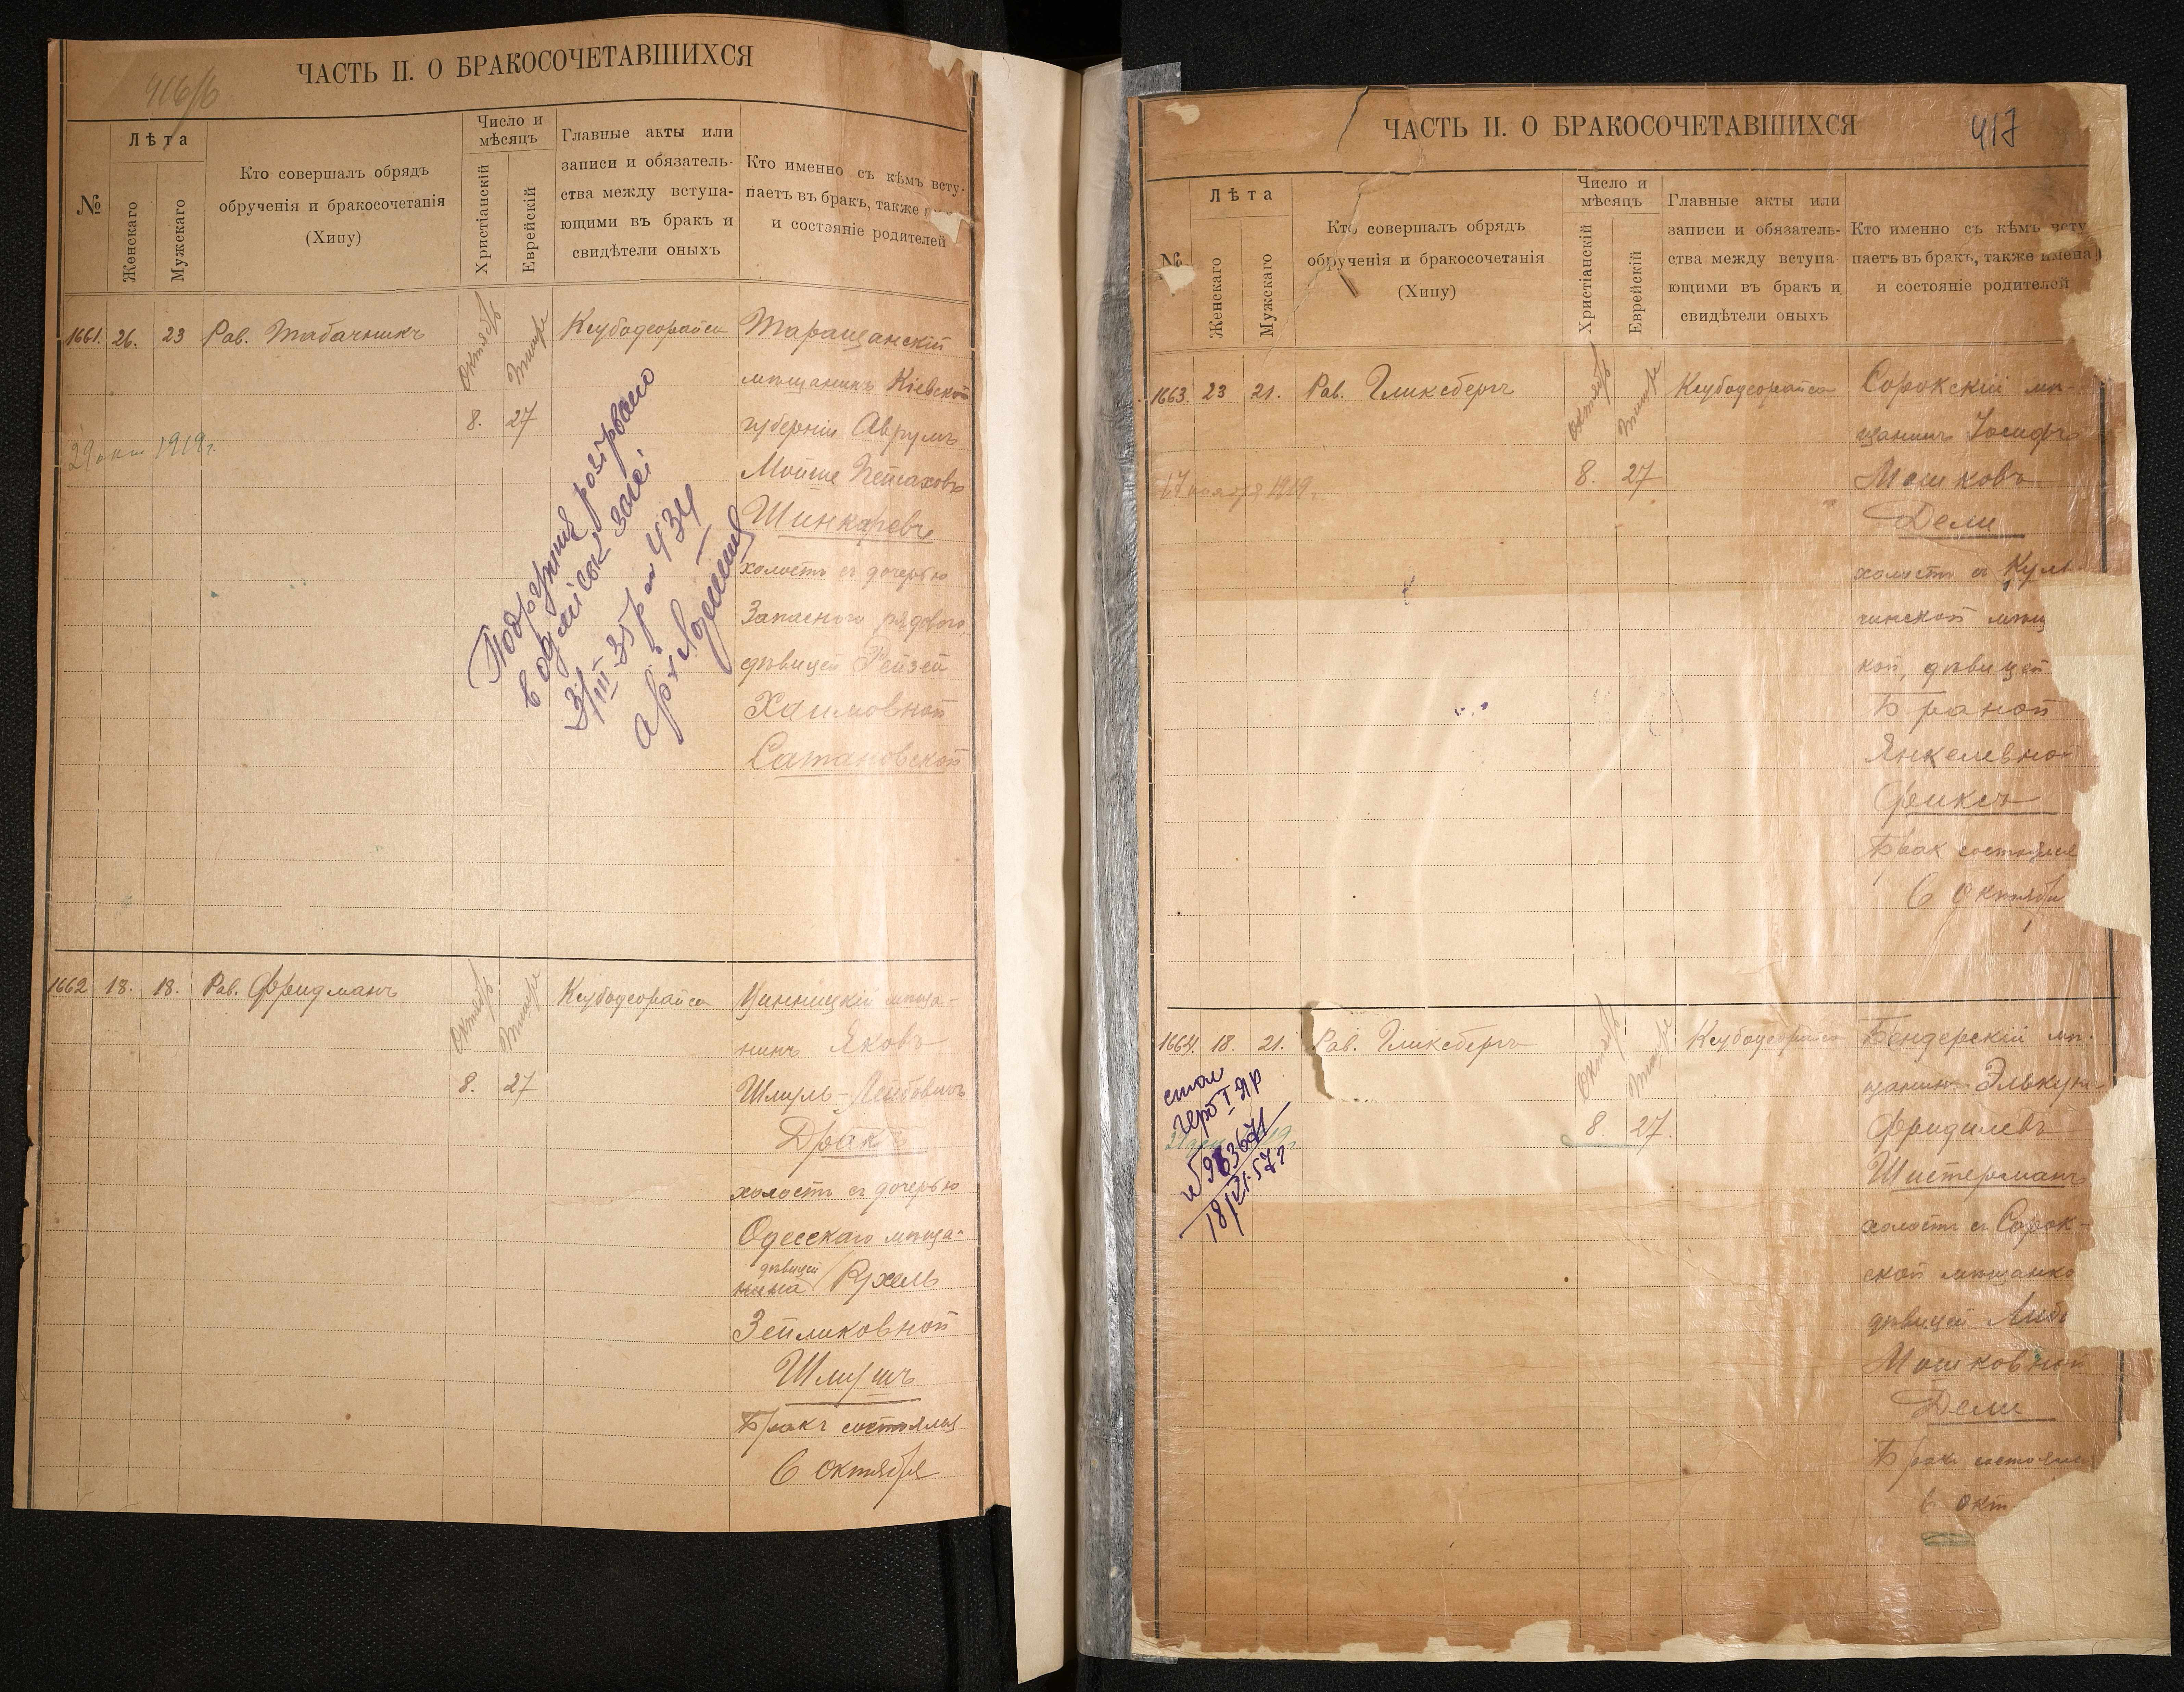 416/б
ЧАСТЬ II. О БРАКОСОЧЕТАВШИХСЯ
№
Лѣта
Женскаго
Мужскаго
Кто совершалъ обрядъ
обрученія и бракосочетанія
(Хипу)
Число и
мѣсяцъ
Христіанскій
Еврейскій
Главные акты или
записи и обязатель-
ства между вступа-
ющими въ бракъ и
свидѣтели оныхъ
Кто именно съ кѣмъ всту-
паетъ въ бракъ, также
и состояніе родителей
1661. 26. 23 Рав. Табачникъ
Октябрь
Тишре
8. 27
Ксубодеорайса
Таращанскій
мѣщанинъ Кіевской
губерніи Аврумъ
Мойше Песаховъ
Шинкаревъ
холостъ съ дочерью
Запаснаго рядового,
дѣвицей Рейзей
Хаимовной
Сатановской
29 окт 1919 г.
Подружжя розірвано
в одеській загсі
3/III-35 р за 434
арх
1662 18. 18. Рав. Фридманъ
Октябрь
Тишре
8. 27
Ксубодеорайса
Винницкій мѣща-
нинъ Яковъ
Шмуль-Лейбовичъ
Дракъ
холостъ съ дочерью
Одесскаго мѣща-
дѣвицей
нина Рухель
Зейликовной
Шмушъ
Бракъ состоялся
6 Октября
ЧАСТЬ II. О БРАКОСОЧЕТАВШИХСЯ
417
№
Лѣта
Женскаго
Мужскаго
Кто совершалъ обрядъ
обрученія и бракосочетанія
(Хипу)
Число и
мѣсяцъ
Христіанскій
Еврейскій
Главные акты или
записи и обязатель-
ства между вступа
ющими въ бракъ и
свидѣтели оныхъ
Кто именно съ кѣмъ всту
паетъ въ бракъ, также имена
и состояніе родителей
1663. 23 21. Рав. Гликсбергъ
Октябрь
Тишре
8. 27
Ксубодеорайса
Сорокскій мѣ-
щанинъ Іосифъ
Мошковъ
Дели
холостъ съ Куль-
чинской мѣщ
кой, дѣвицей
Браной
Янкелевной
Фиксъ
Бракъ состоялся
6 Октября
17 ноября 1919.
1664. 18. 21. Рав. Гликсбергъ
Октябрь
Тишре
8. 27.
Ксубодеорайса
Бендерскій мѣ-
щанинъ Элькунъ
Фридилевъ
Шистерманъ
холостъ съ Сорок-
ской мѣщанко
дѣвицей Либ
Мошковной
Дели
Бракъ состоялся
6 Окт
18/VI-57 г